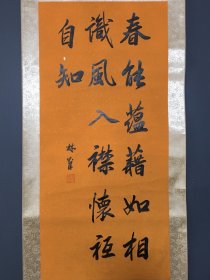 春能蘊藉如相
識風入襟懷祗
自知